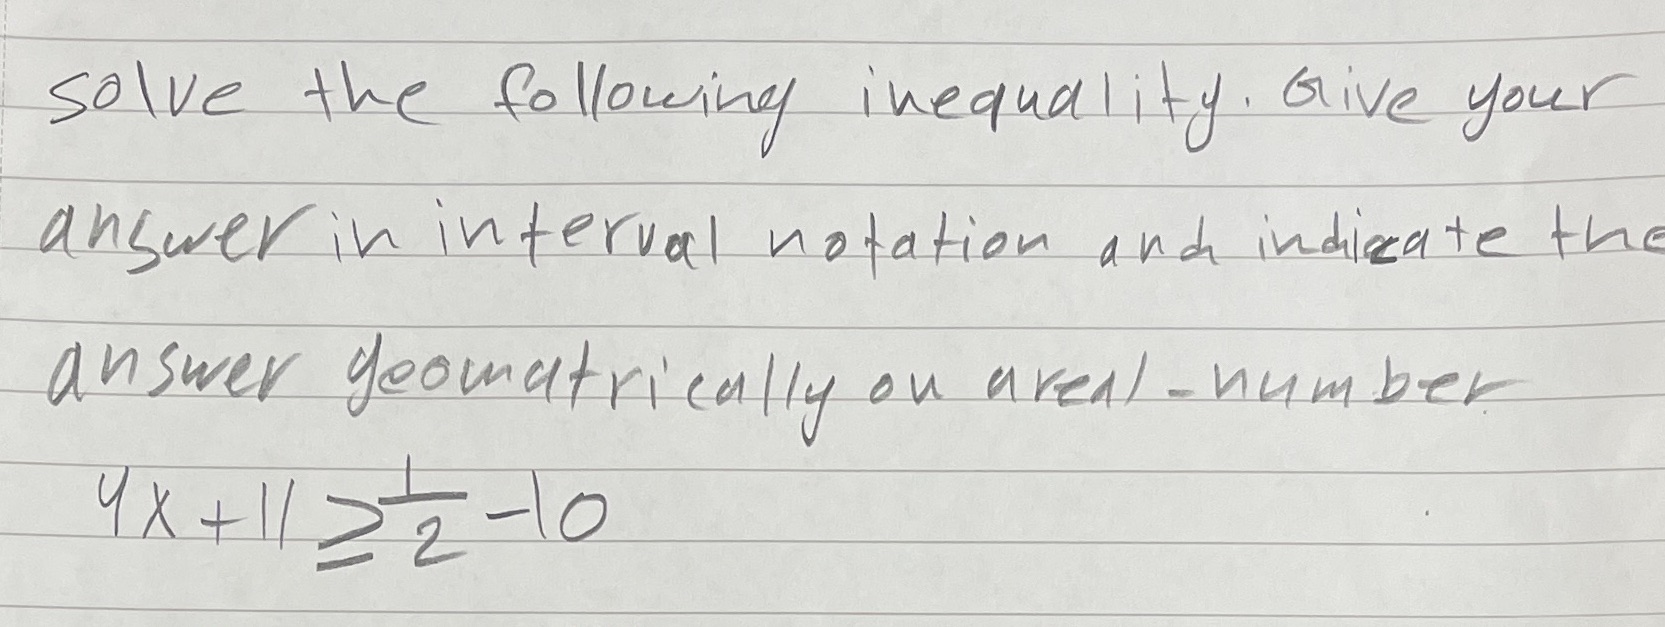 solve the following inequality. Give your
answer in interval notation and indicate the
answer geomatrically on a real-number
4x+11≥1/2-10